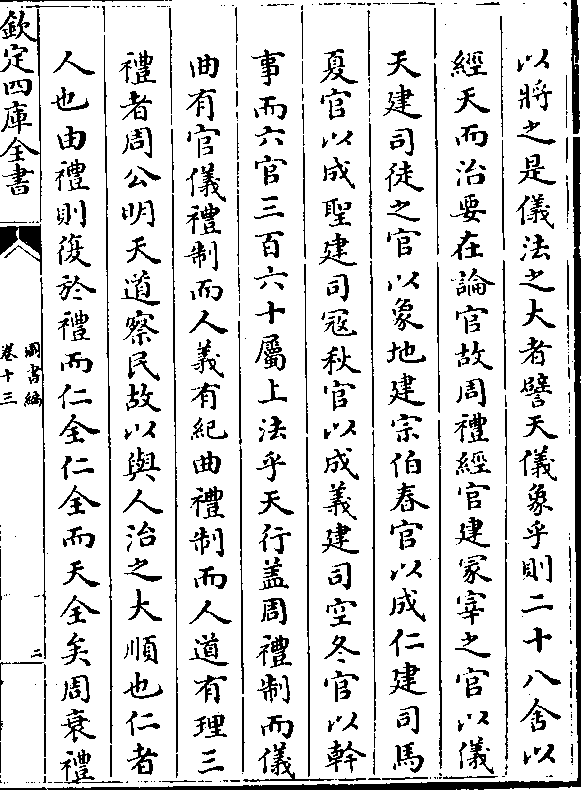 以將之是儀法之大者譬天儀象乎則二十八舍以
經天而治要在論官故周禮經官建冢宰之官以儀
天建司徒之官以象地建宗伯春官以成仁建司馬
夏官以成聖建司寇秋官以成義建司空冬官以幹
事而六官三百六十屬上法乎天行蓋周禮制而儀
曲有官儀禮制而人義有紀曲禮制而人道有理三
禮者周公明天道察民故以與人治之大順也仁者
人也由禮則復於禮而仁全仁全而天全矣周衰禮
欽定四庫全書
圖書編
卷十三
二